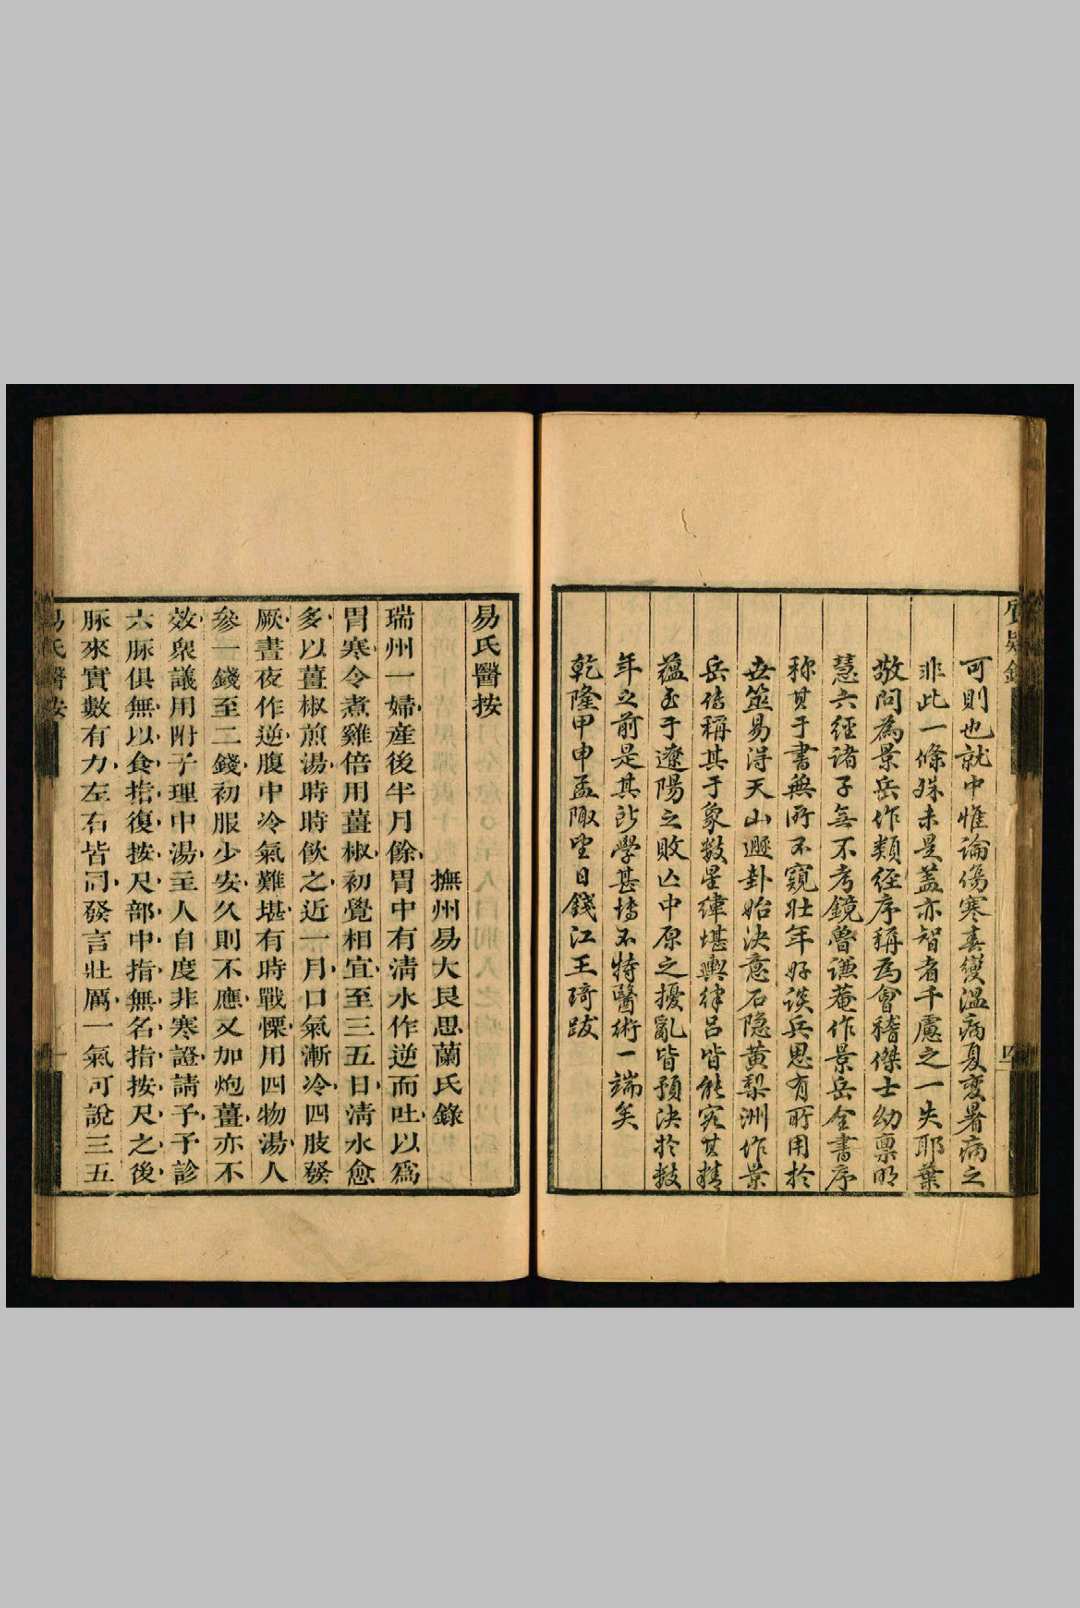 質疑錄
可則也就中惟論傷寒春變溫病夏變暑病之
非此一條殊未是蓋亦智者千慮之一失耶葉
敬問為景岳作類經序稱為會稽傑士幼稟明
慧六經諸子無不考鏡魯謙菴作景岳全書序
称其于書無所不窺壯年好談兵思有所用於
世筮易得天山遯卦始決意石隐黄梨洲作景
岳傳稱其于象數星緯堪輿律呂皆能究其精
蘊至于遼陽之敗亾中原之擾亂皆預決於數
年之前是其所學甚博不特醫術一端矣
乾隆甲申孟陬望日錢江王琦跋
四
易氏醫按
撫州易大艮思蘭氏錄
瑞州一婦產後半月餘胃中有清水作逆而吐以為
胃寒令煮雞倍用薑椒初覺相宜至三五日清水愈
多以薑椒煎湯時時飲之近一月口氣漸冷四肢發
厥晝夜作逆腹中冷氣難堪有時戰慄用四物湯人
參一錢至二錢初服少安久則不應又加炮薑亦不
效衆議用附子理中湯主人自度非寒證請予予診
六脉俱無以食指復按尺部中指無名指按尺之後
脉來實數有力左右皆同發言壯厲一氣可說三五
易氏醫按